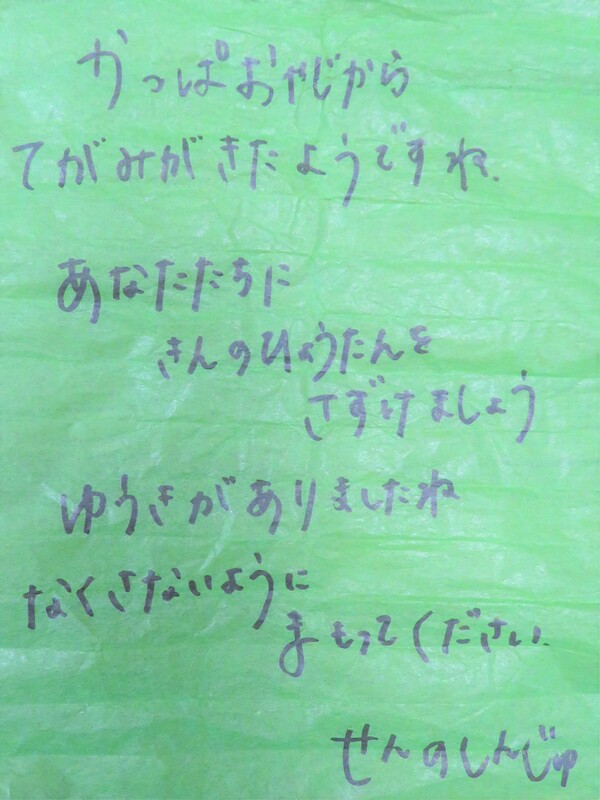 かっぱおやじから
てがみがきたようですね.
あなたたちに
きんのひょうたんを
さずけましょう
ゆうきがありましたね
なくさないように
まもってください.
せんのしんじゅ